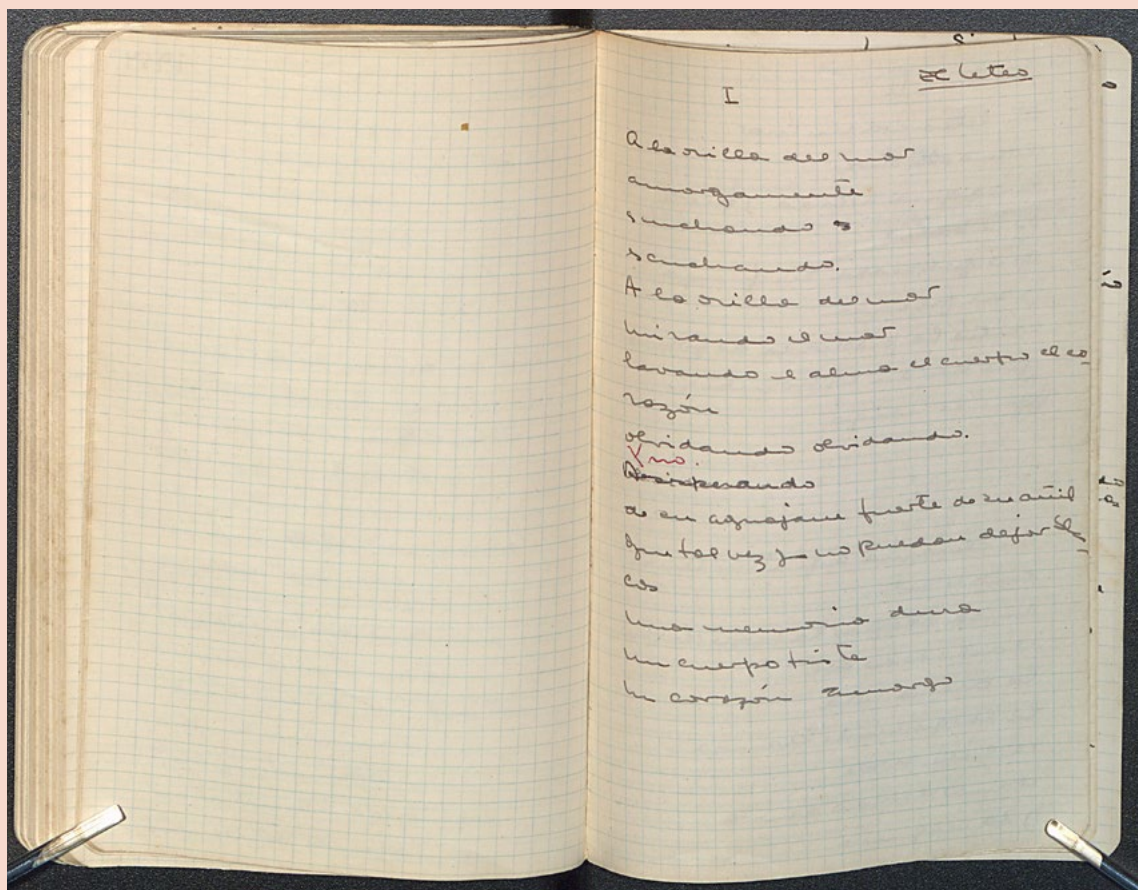 Leteo
I
A la orilla del mar
amargamente
escuchando
escuchando.
A la orilla del mar
mirando el mar
lavando el alma el cuerpo el co
razón
olvidando olvidando.
Y no.
Desesperando
de su aguaje fuerte de su añil
que tal vez ya no puedan dejar
cos
Una memoria dura
Un cuerpo triste
Un corazón amargo